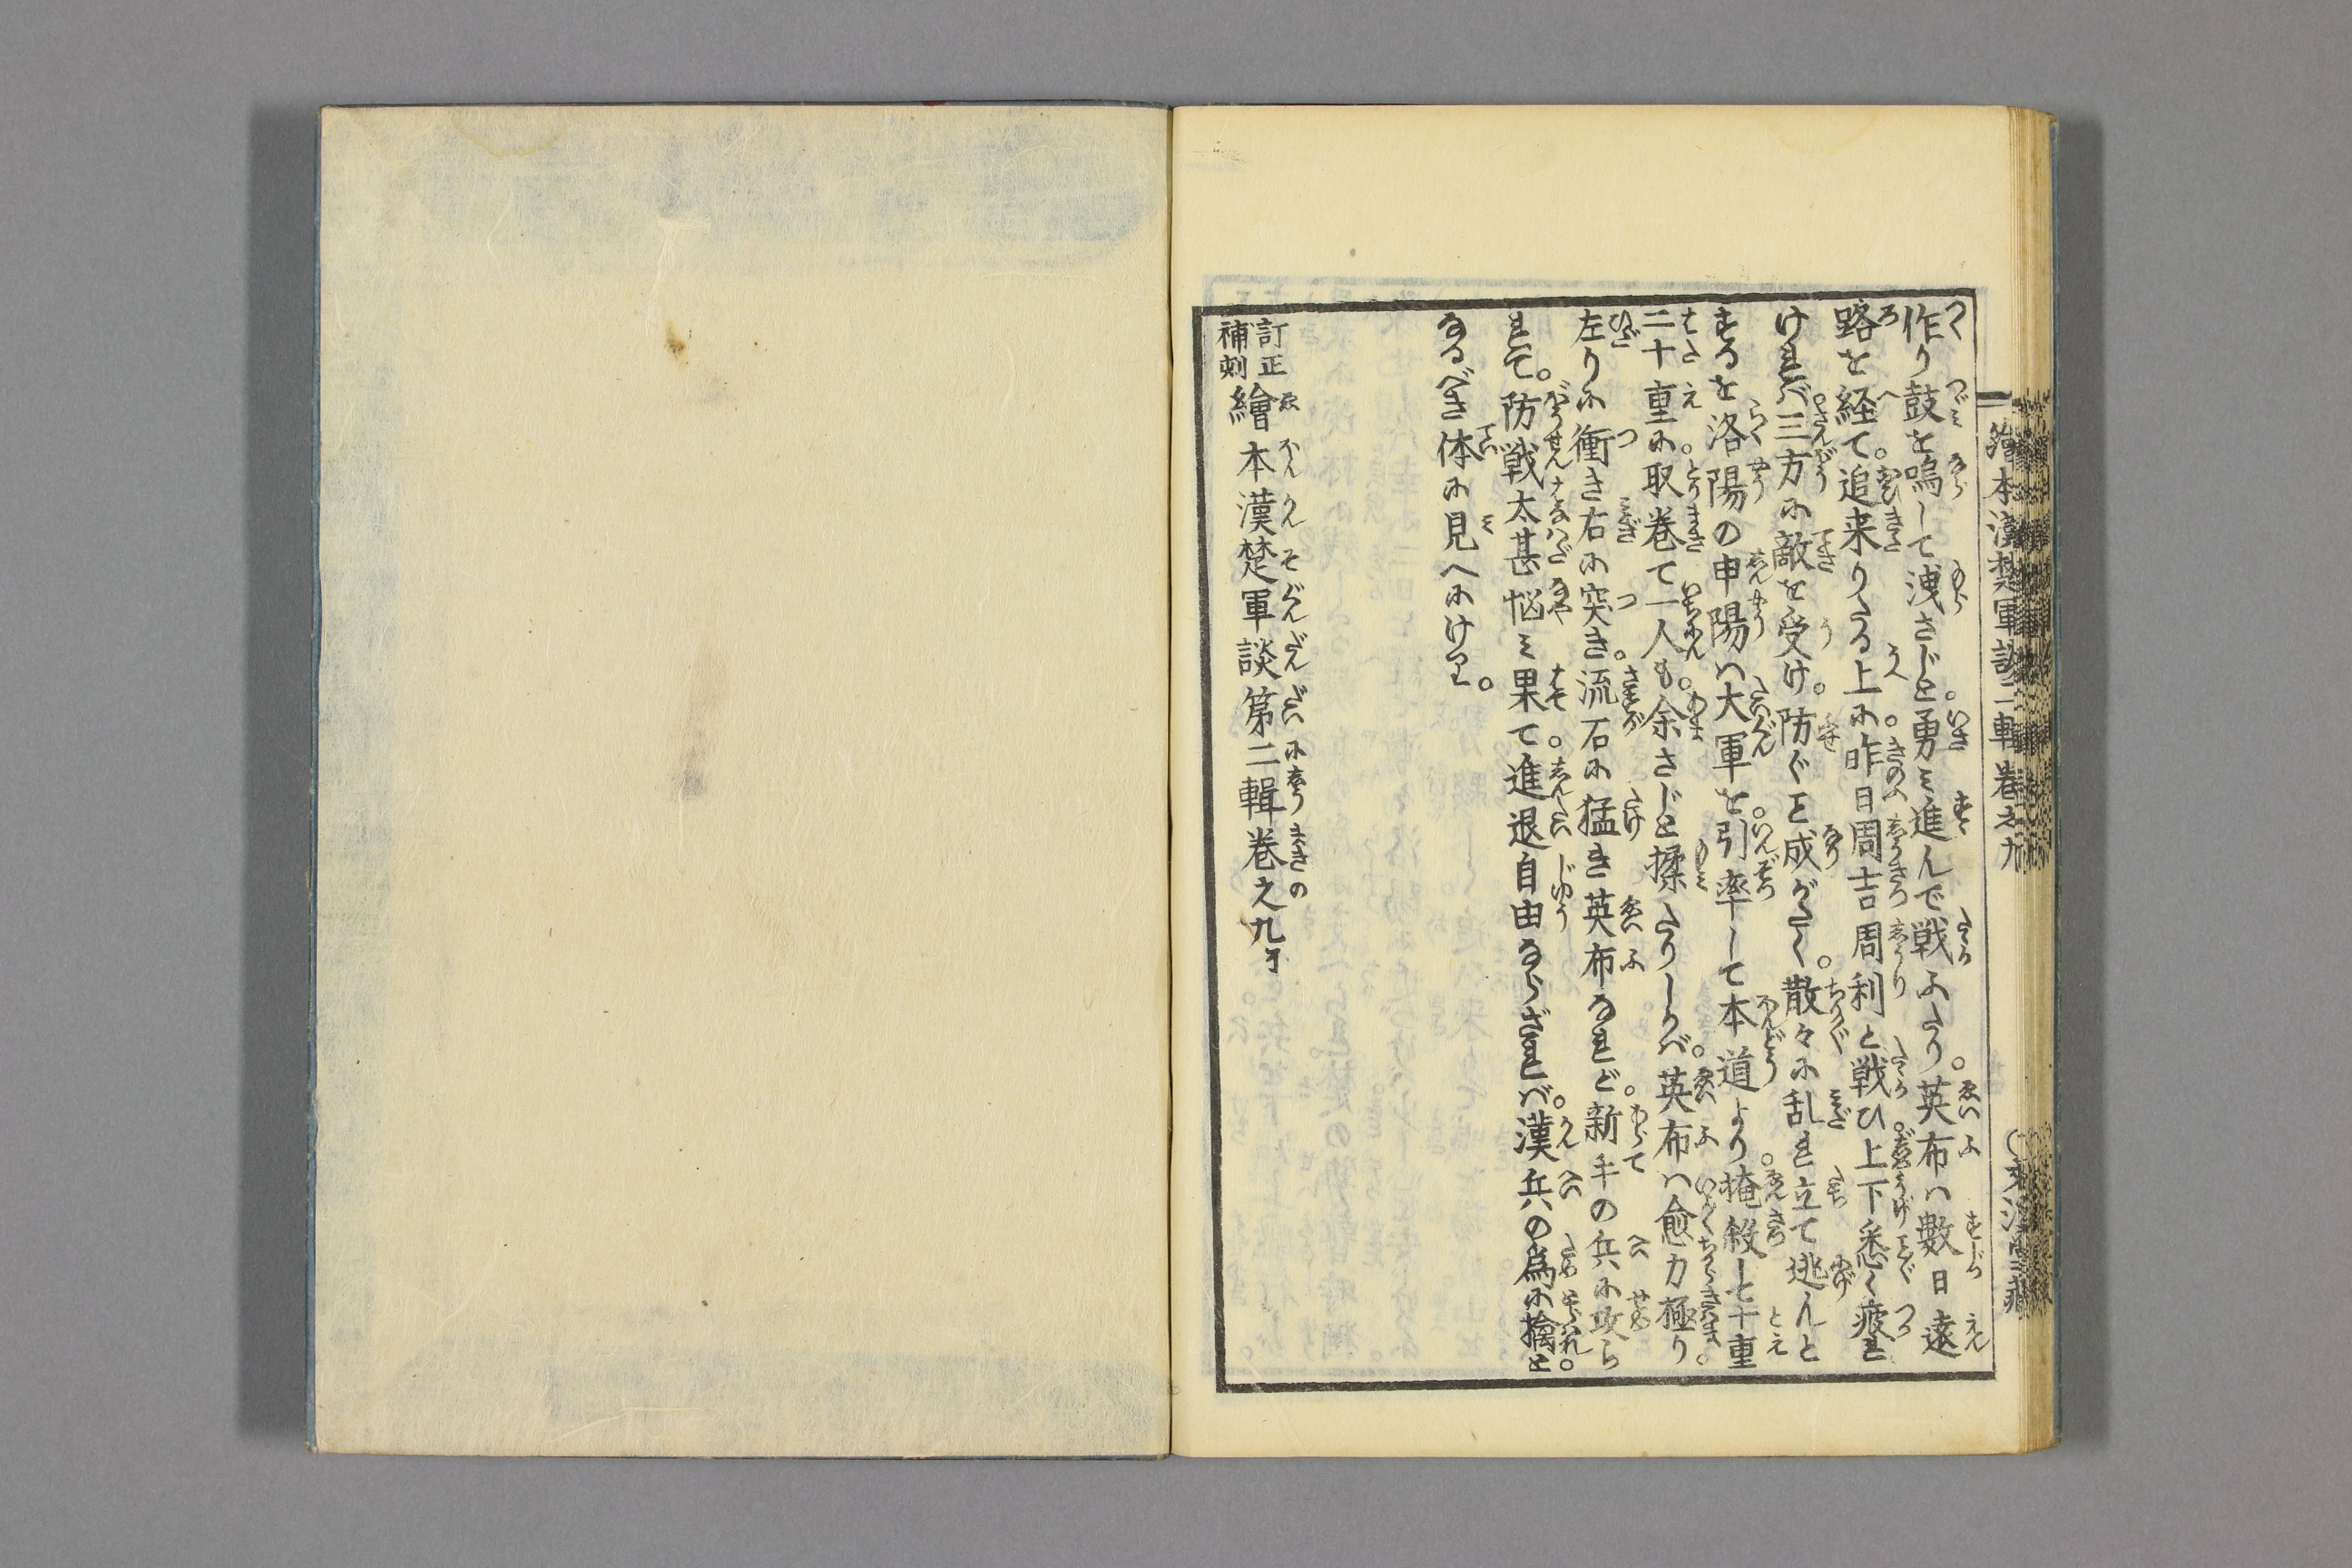 作り鼓を鳴して洩さじと勇ミ進んで戦ふたり。英布ハ數日遠
路を経て。追来りたる上に。昨日周吉周利と戦ひ。上下悉く疲れ
けれバ。三方に敵を受け。防ぐこと成がたく。散々に乱れ立て逃んと
するを洛陽の申陽ハ大軍を。引率して本道より。掩殺して十重
二十重に。取巻て一人も。余さじと揉たりしかバ。英布ハ愈力極り。
左りに衝き右に突き。流石に猛き英布なれど。新手の兵に攻ら
れて。防戦太甚悩ミ果て。進退自由ならざれバ。漢兵の為に擒と。
なるべき体に見へにけり。
訂正補刻繪本漢楚軍談第二輯巻之九
繪本漢楚軍談二輯巻之九